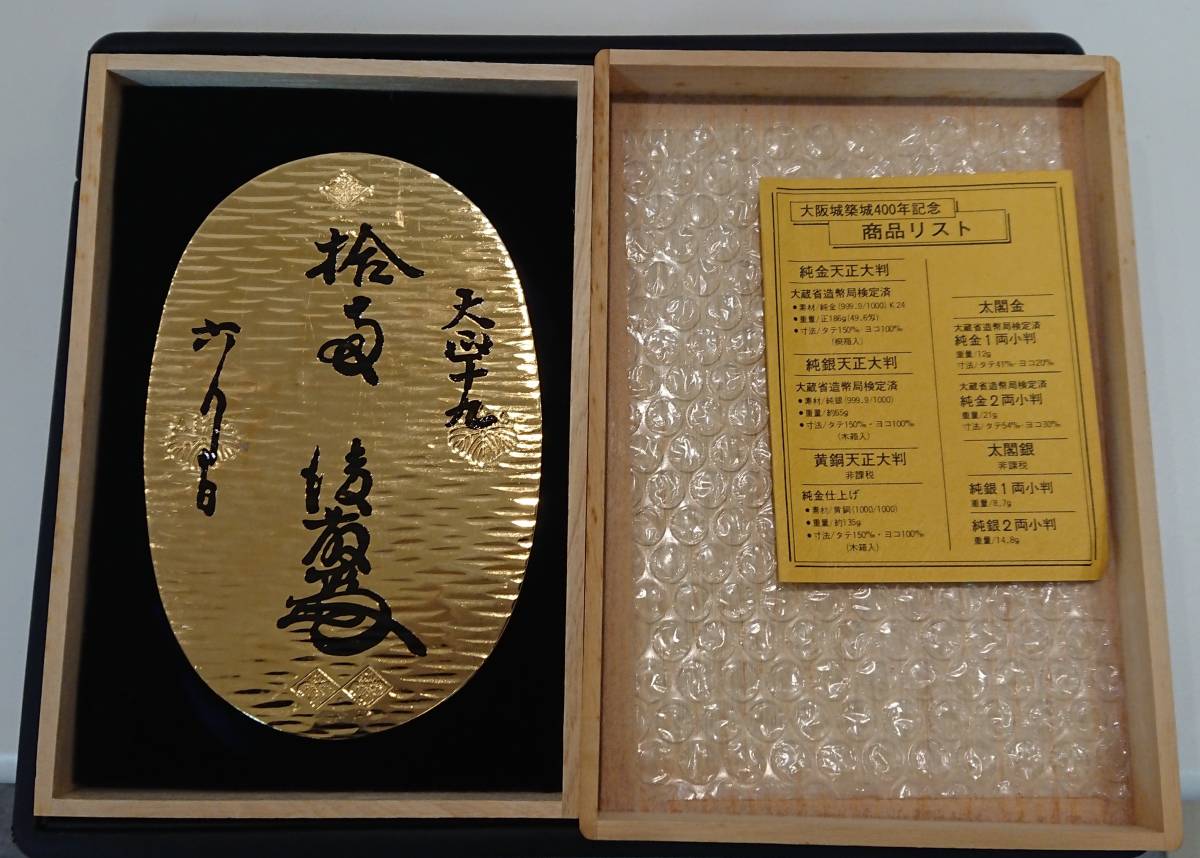 拾両後藤
天正十九
六月日
大阪城築城400年記念
商品リスト
純金天正大判
大蔵省造幣局検定済
●素材/純金(999.9/1000) K24
●重量/正186g(49.6匁)
●寸法/タテ150%・ヨコ100%
(桐箱入)
純銀天正大判
大蔵省造幣局検定済
●素材/純銀(999.9/1000)
●重量/約65g
●寸法/タテ150%・ヨコ100%
(木箱入)
黄銅天正大判
非課税
純金仕上げ
●素材/黄銅(1000/1000)
●重量/約135g
●寸法/タテ150%・ヨコ100%
(木箱入)
太閤金
大蔵省造幣局検定済
純金1両小判
重量/12g
寸法/タテ41%・ヨコ20%
大蔵省造幣局検定済
純金2両小判
重量/21g
寸法/タテ54%・ヨコ30%
太閤銀
非課税
純銀1両小判
重量/8.7g
純銀2両小判
重量/14.8g